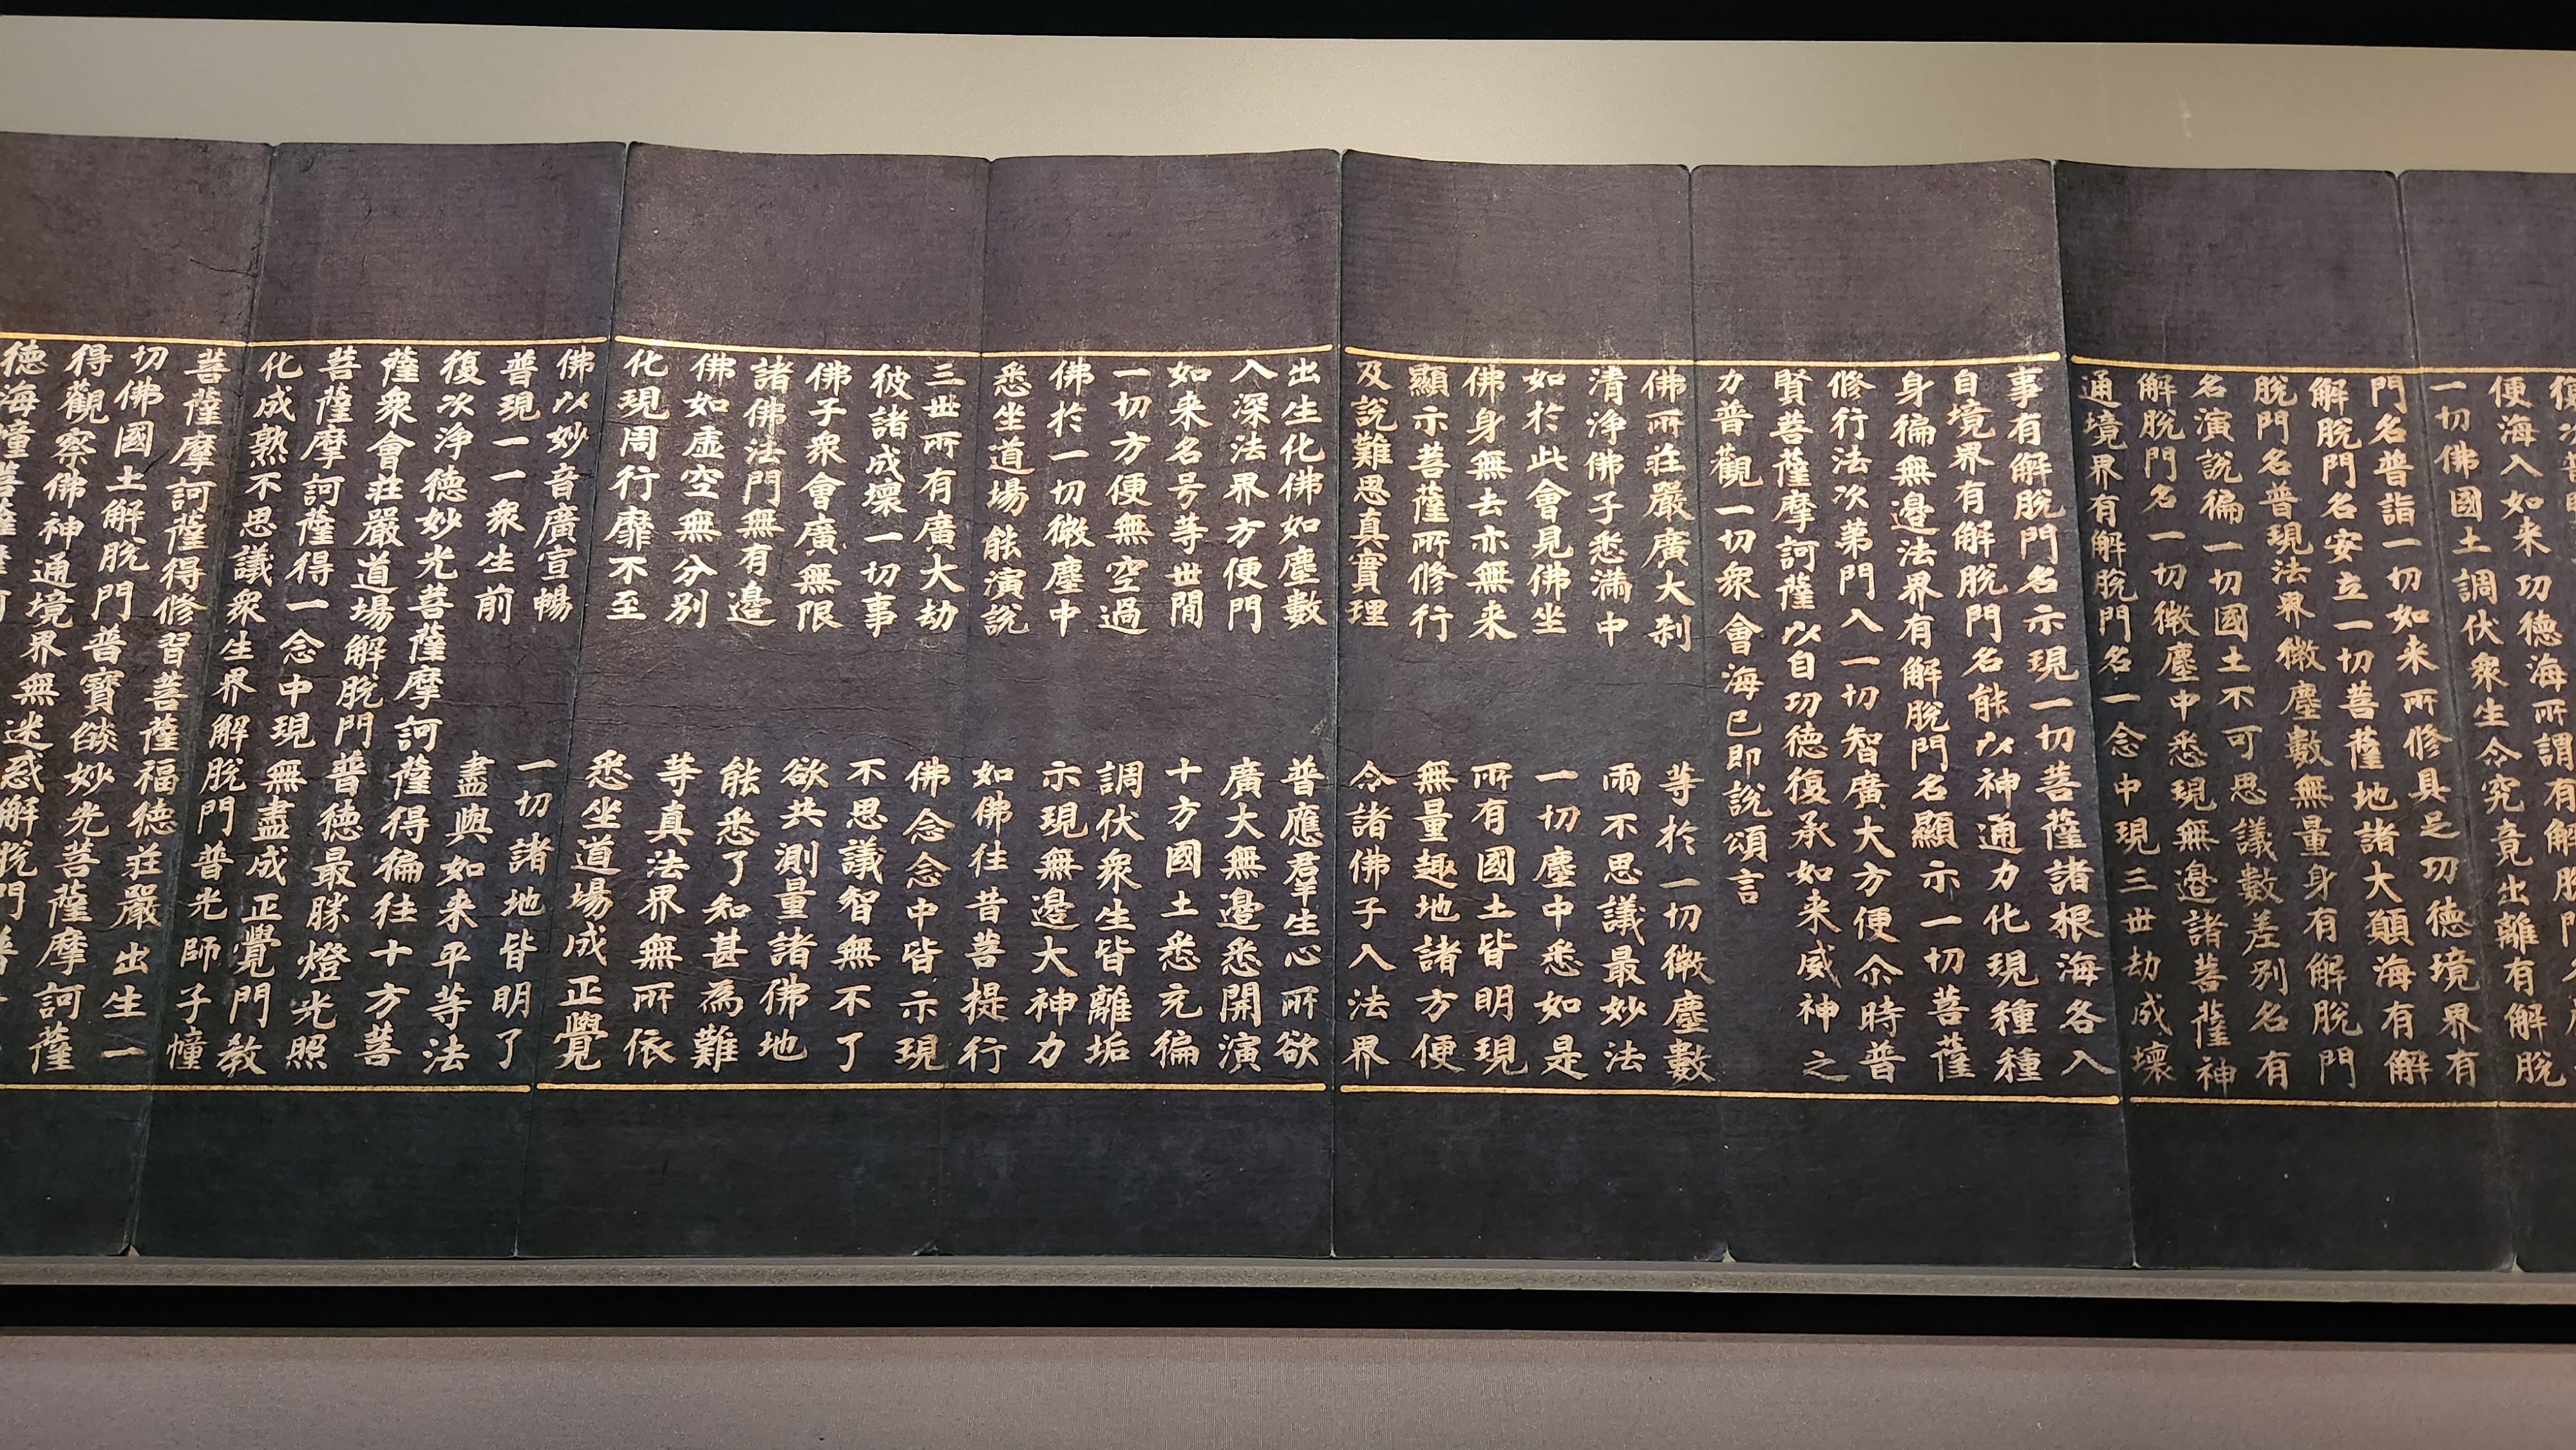 便海入如来功德海所謂有解脫
一切佛國土調伏衆生令究竟出離有解脫
門名普詣一切如来所修具足功德境界有
解脫門名安立一切菩薩地諸大願海有解
脫門名普現法界微塵數無量身有解脫門
名演說徧一切國土不可思議數差別名有
解脫門名一切微塵中悉現無邊諸菩薩神
通境界有解脫門名一念中現三世劫成壞
事有解脫門名示現一切菩薩諸根海各入
自境界有解脫門名能以神通力化現種種
身徧無邊法界有解脫門名顯示一切菩薩
修行法次第門入一切智廣大方便尒時普
賢菩薩摩訶薩以自功德復承如来威神之
力普觀一切衆會海已即說頌言
佛所莊嚴廣大刹 等於一切微塵數
清淨佛子悉滿中 雨不思議最妙法
如於此會見佛坐 一切塵中悉如是
佛身無去亦無来 所有國土皆明現
顯示菩薩所修行 無量趣地諸方便
及說難思真實理 令諸佛子入法界
出生化佛如塵數 普應羣生心所欲
入深法界方便門 廣大無邊悉開演
如来名号等世間 十方國土悉充徧
一切方便無空過 調伏衆生皆離垢
佛於一切微塵中 示現無邊大神力
悉坐道場能演說 如佛往昔菩提行
三世所有廣大劫 佛念念中皆示現
彼諸成壞一切事 不思議智無不了
佛子衆會廣無限 欲共測量諸佛地
諸佛法門無有邊 能悉了知甚為難
佛如虛空無分別 等真法界無所依
化現周行靡不至 悉坐道場成正覺
佛以妙音廣宣暢 一切諸地皆明了
普現一一衆生前 盡與如来平等法
復次淨德妙光菩薩摩訶薩得徧往十方菩
薩衆會莊嚴道場解脫門普德最勝燈光照
菩薩摩訶薩得一念中現無盡成正覺門教
化成熟不思議衆生界解脫門普光師子幢
菩薩摩訶薩得修習菩薩福德莊嚴出生一
切佛國土解脫門普寶燄妙光菩薩摩訶薩
得觀察佛神通境界無迷惑解脫門普
德海幢菩薩摩訶